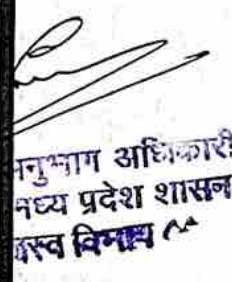 नुभाग अधिकारी
मध्य प्रदेश शासन
विभाग